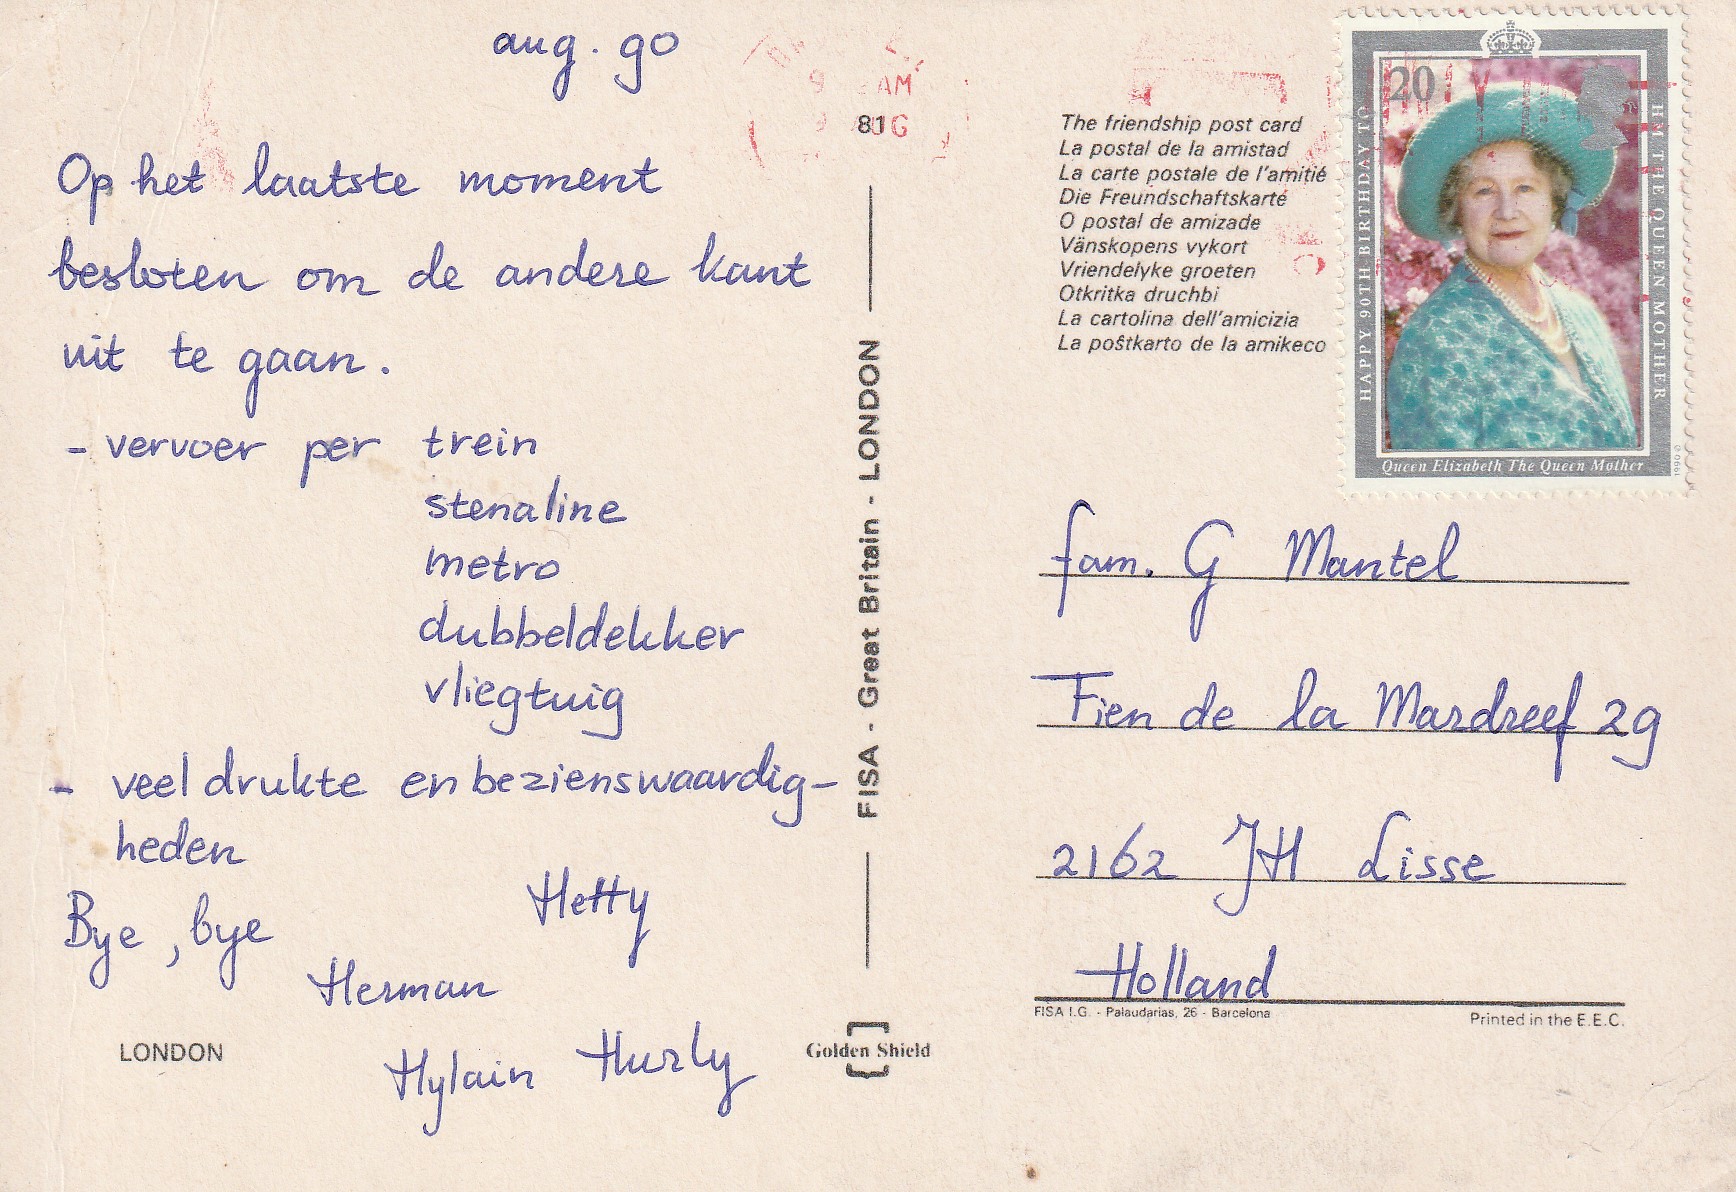 aug. 90
Op het laatste moment
besloten om de andere kant
uit te gaan.
- vervoer per trein
stenaline
metro
dubbeldekker
vliegtuig
- veel drukte en bezienswaardig-
heden
Bye, bye
Hetty
Herman
Hylain Hurly
LONDON
AM
AUG
81
FISA - Great Britain - LONDON
Golden Shield
The friendship post card
La postal de la amistad
La carte postale de l'amitié
Die Freundschaftskarte
O postal de amizade
Vänskopens vykort
Vriendelyke groeten
Otkritka druchbi
La cartolina dell'amicizia
La poŝtkarto de la amikeco
20
HAPPY 90TH BIRTHDAY TO
H.M. THE QUEEN MOTHER
Queen Elizabeth The Queen Mother
©1990
fam. G Mantel
Fien de la Mardreef 29
2162 JH Lisse
Holland
FISA I.G. - Palaudarias, 26 - Barcelona
Printed in the E.E.C.